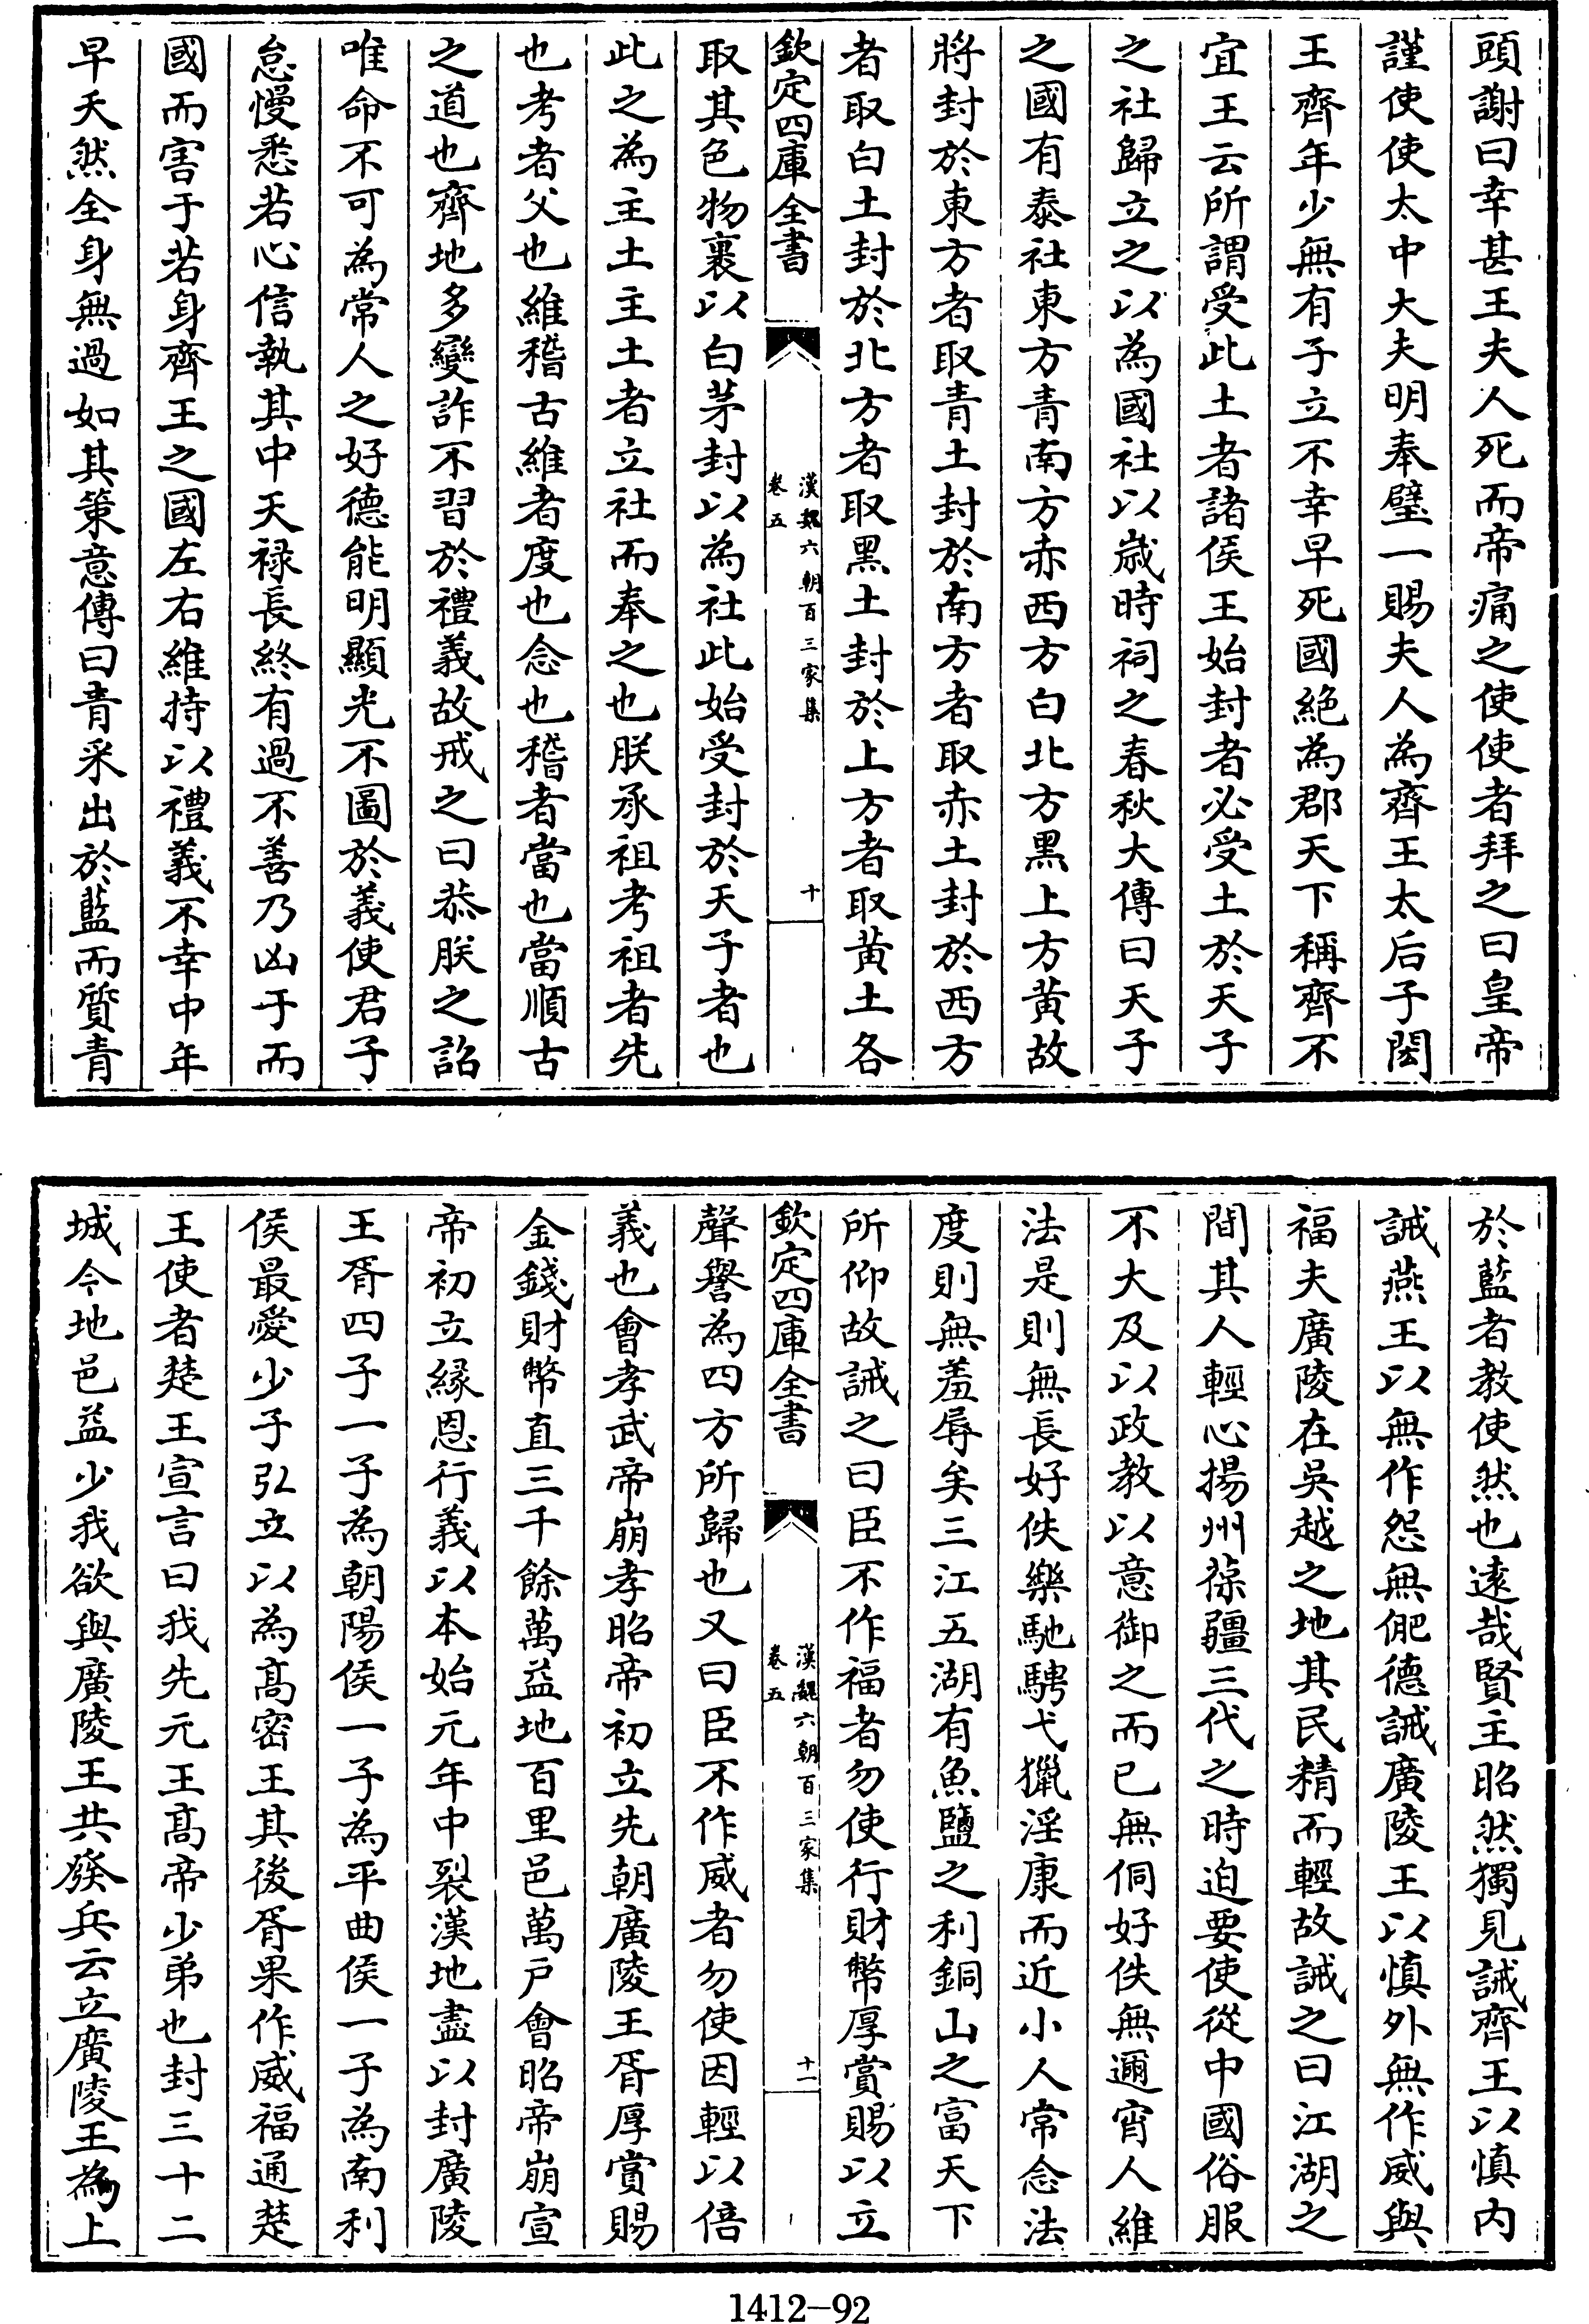 頭謝曰幸甚王夫人死而帝痛之使使者拜之曰皇帝
謹使使太中大夫明奉璧一賜夫人為齊王太后子閎
王齊年少無有子立不幸早死國絶為郡天下稱齊不
宜王云所謂受此土者諸侯王始封者必受土於天子
之社歸立之以為國社以歳時祠之春秋大傳曰天子
之國有泰社東方青南方赤西方白北方黒上方黄故
將封於東方者取青土封於南方者取赤土封於西方
者取白土封於北方者取黑土封於上方者取黄土各
欽定四庫全書
漢魏六朝百三家集
卷五
十
取其色物裹以白茅封以為社此始受封於天子者也
此之為主土主土者立社而奉之也朕承祖考祖者先
也考者父也維稽古維者度也念也稽者當也當順古
之道也齊地多變詐不習於禮義故戒之曰恭朕之詔
唯命不可為常人之好德能明顯光不圖於義使君子
怠慢悉若心信執其中天禄長終有過不善乃凶于而
國而害于若身齊王之國左右維持以禮義不幸中年
早夭然全身無過如其策意傳曰青采出於藍而質青
於藍者教使然也逺哉賢主昭然獨見誡齊王以慎内
誡燕王以無作怨無俷德誡廣陵王以慎外無作威與
福夫廣陵在吳越之地其民精而輕故誡之曰江湖之
間其人輕心揚州葆疆三代之時迫要使從中國俗服
不大及以政教以意御之而已無侗好佚無邇宵人維
法是則無長好佚樂馳騁弋獵淫康而近小人常念法
度則無羞辱矣三江五湖有魚鹽之利銅山之富天下
所仰故誡之曰臣不作福者勿使行財幣厚賞賜以立
欽定四庫全書
漢魏六朝百三家集
卷五
十一
聲譽為四方所歸也又曰臣不作威者勿使因輕以倍
義也會孝武帝崩孝昭帝初立先朝廣陵王胥厚賞賜
金錢財幣直三千餘萬益地百里邑萬戸會昭帝崩宣
帝初立縁恩行義以本始元年中裂漢地盡以封廣陵
王胥四子一子為朝陽侯一子為平曲侯一子為南利
侯最愛少子弘立以為髙密王其後胥果作威福通楚
王使者楚王宣言曰我先元王髙帝少弟也封三十二
城今地邑益少我欲與廣陵王共發兵云立廣陵王為上
1412-92